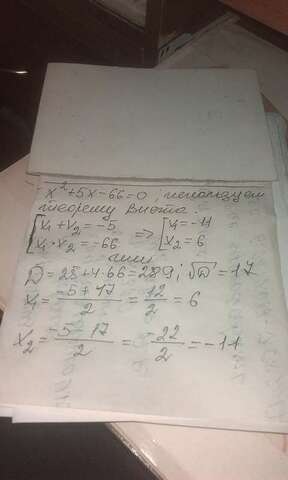 x²+5x-66=0; используем
теорему Виета:
[x₁+x₂=-5 => [x₁=-11
[x₁·x₂=-66 [x₂=6
или
D=25+4·66=289, √D=17
x₁=(-5+17)/2=12/2=6
x₂=(-5-17)/2=-22/2=-11